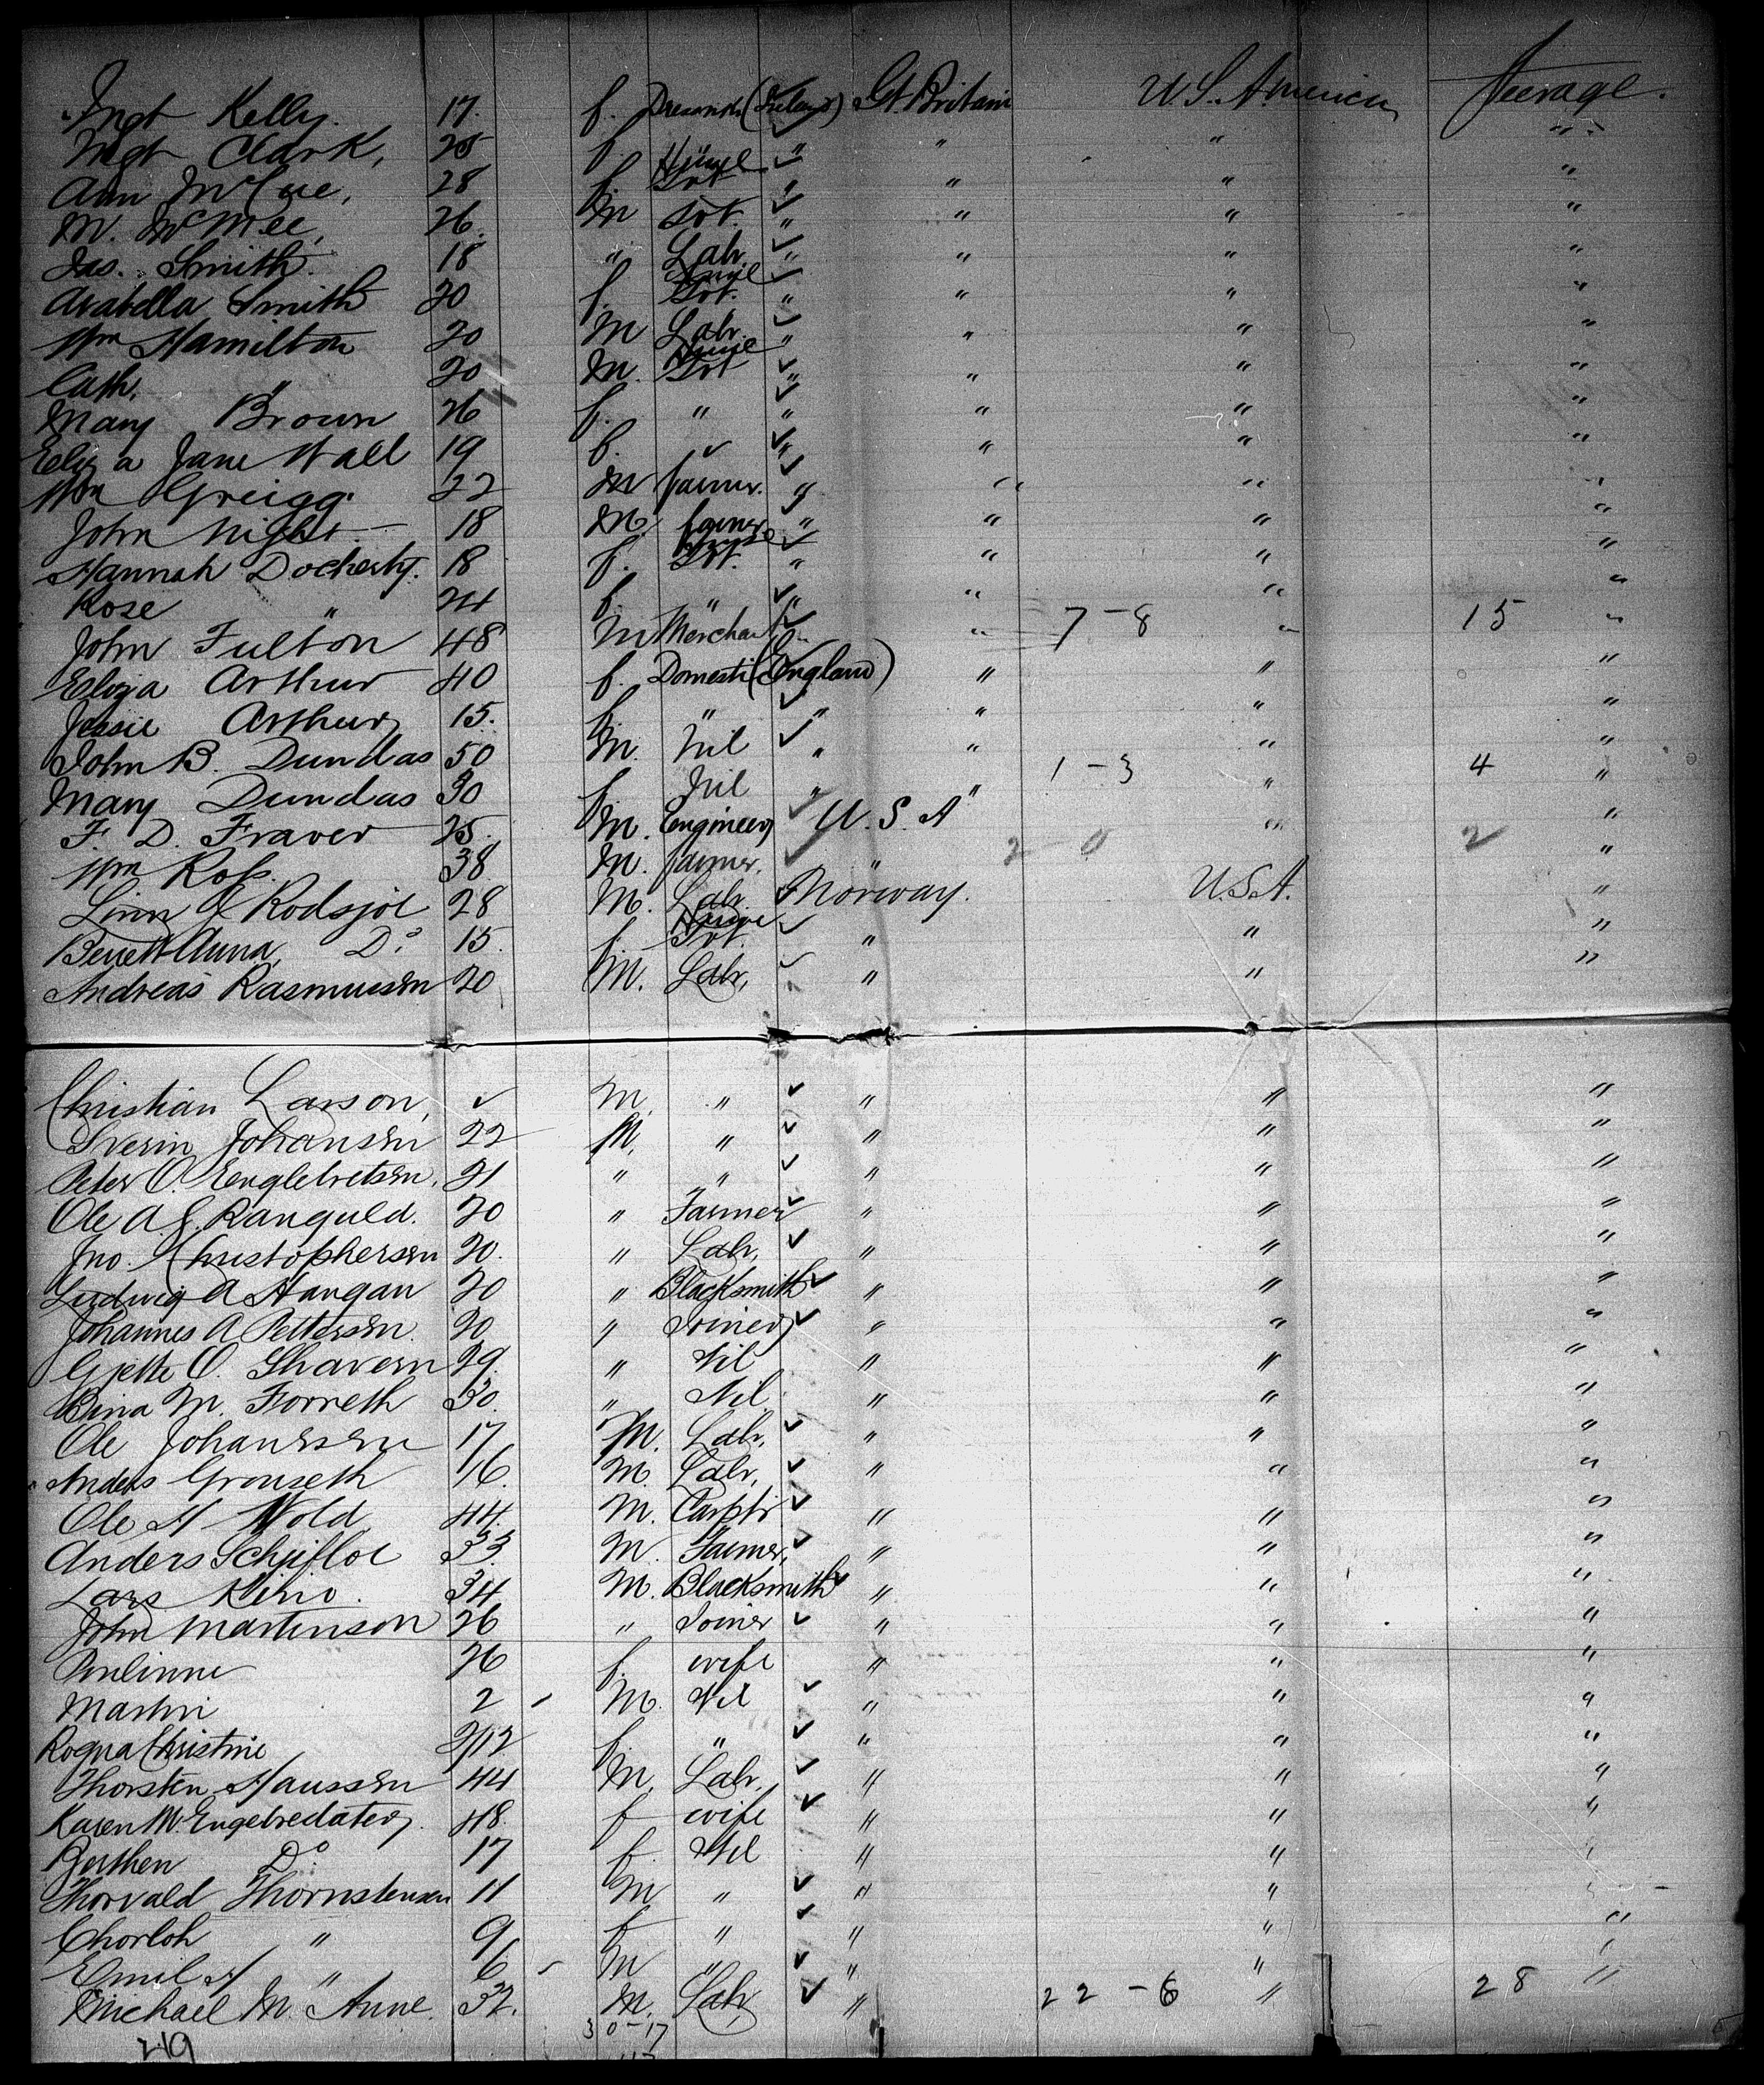 Mgt Kelly. 17. f. (Ireland) Gt. Britain U.S. America Steerage.
Mgt Clark, 25 f. " " " " "
Ann McCue, 28 f. House Svt " " " "
M. McMee, 26. M Svt. " " " "
Jas. Smith. 18 " Labr. " " " "
Arabella Smith 20 f. House Svt. " " " "
Wm Hamilton 20 M Labr. " " " "
Cath. " 20 M. House Svt " " " "
Mary Brown 26 f. " " " " "
Eliza Jane Wall 19 f. " " " " "
Wm Greigg. 22 M farmer. " " " "
John Night 18 M. farmer " " " "
Hannah Docherty. 18 f. House Svt. " " " "
Rose " 24 f. " " " " "
John Fulton 48 M Merchant " " 7-8 " 15 "
Eliza Arthur 40 f. Domesti (England) " " "
Jessie Arthur 15. f. " " " " "
John B. Dundas 50 M. Nil " " " "
Mary Dundas 30 f. Nil " " 1-3 " 4 "
F. D. Fraver 25. M. Engineer U.S.A " "
Wm Ross. 38 M. farmer. " 2-0 2 "
Linn J Rodsjoe 28 M. Labr. Norway. U.S.A. "
Benett Anna, Do 15. f. House Svt. " " "
Andreas Rasmussen 20 M. Labr, " " "
Christian Larson, ✓ M. " " " "
Sverin Johansen 22 M. " " " "
Peter O. Engletretsen. 21 " " " " "
Ole A. J. Ranguld. 20 " Farmer " " "
Jno. Christophersen 20. " Labr, " " "
Ludwig A Haugan 20 " Blacksmith " " "
Johannes A Pettersen. 20 " Joiner " " "
Gjette O. Shavern 29. " Nil " " "
Bina M. Forreth 30. " Nil " " "
Ole Johanssen 17 M. Labr, " " "
Anders Grouseth 16. M. Labr, " " "
Ole H Wold 44. M. Carptr " " "
Anders Schjefloe 33. M. Farmer, " " "
Lars Kino. 34 M. Blacksmith " " "
John Martinson 26 " Joiner " " "
Paulinne 26 f. wife " " "
Martin 2 M. Nil " " "
Rogna Christine 9/12 f. " " " "
Thorsten Haussen 44 M. Labr. " " "
Karen M. Engebredater. 48. f wife " " "
Berthen Do 17 f. Nil " " "
Thorvald Thornstensen 11 M " " " "
Chorloh " 9 f " " " "
Emil H " 6 M " " " "
Michael M. Aune. 32. M. Labr, " 22-6 " 28 "
30-17
219